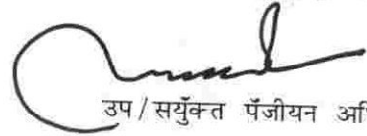 उप/सयुँक्त पँजीयन अ